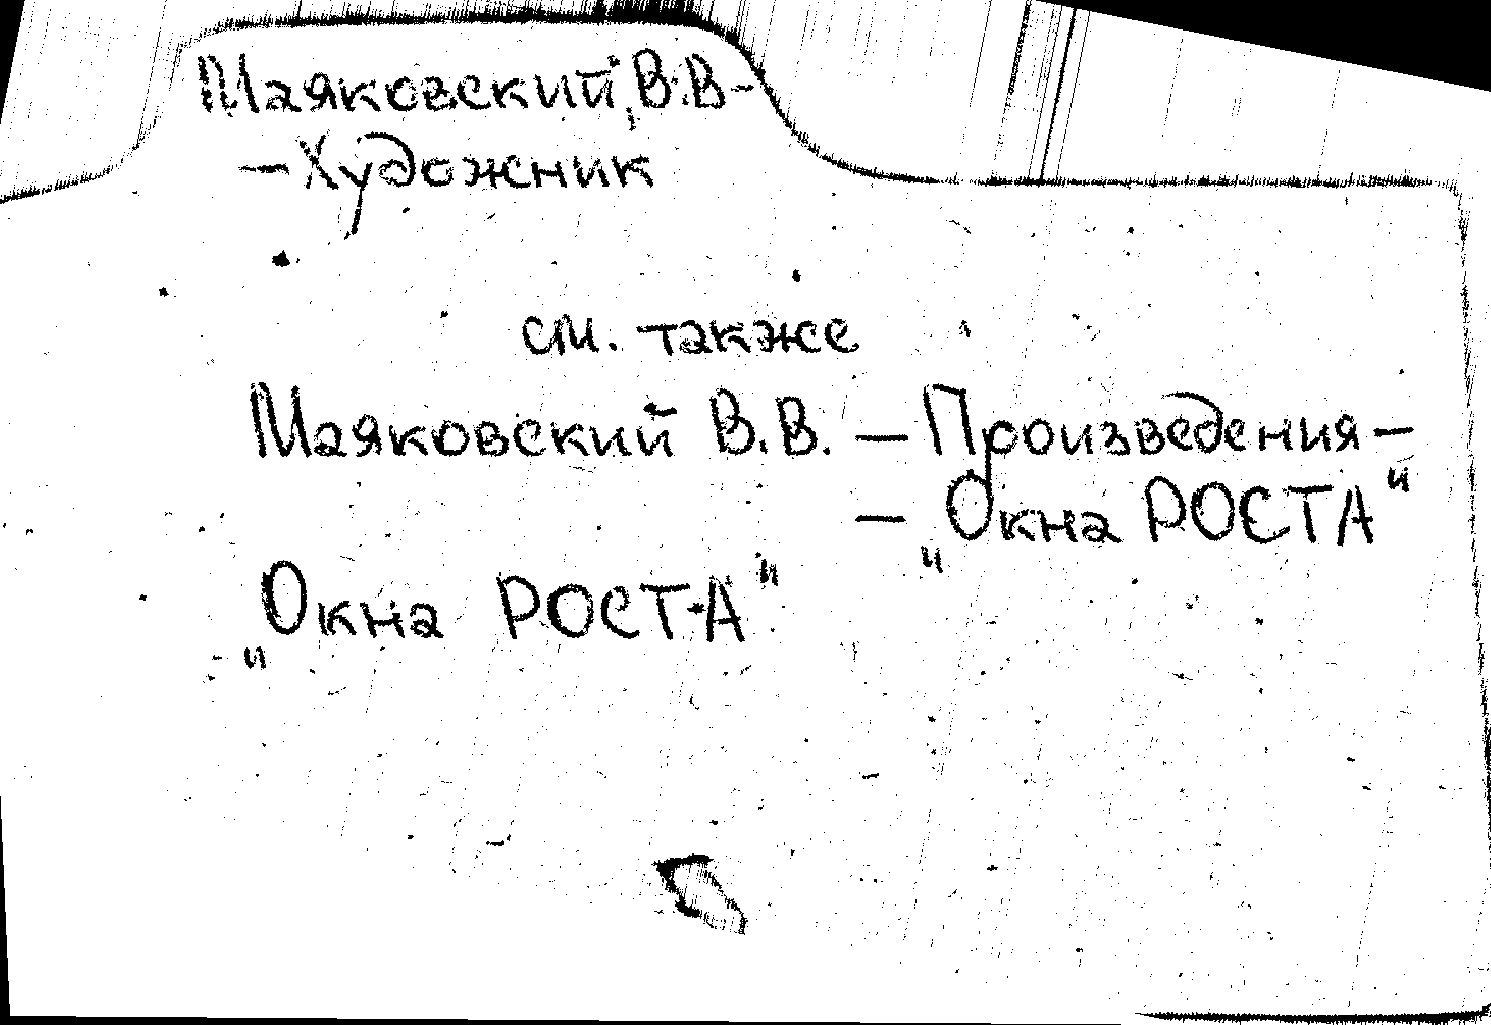 Маяковский, В.В-
- Художник
см. также
Маяковский В.В. - Произведения -
- „Окна РОСТА"
„Окна РОСТА"